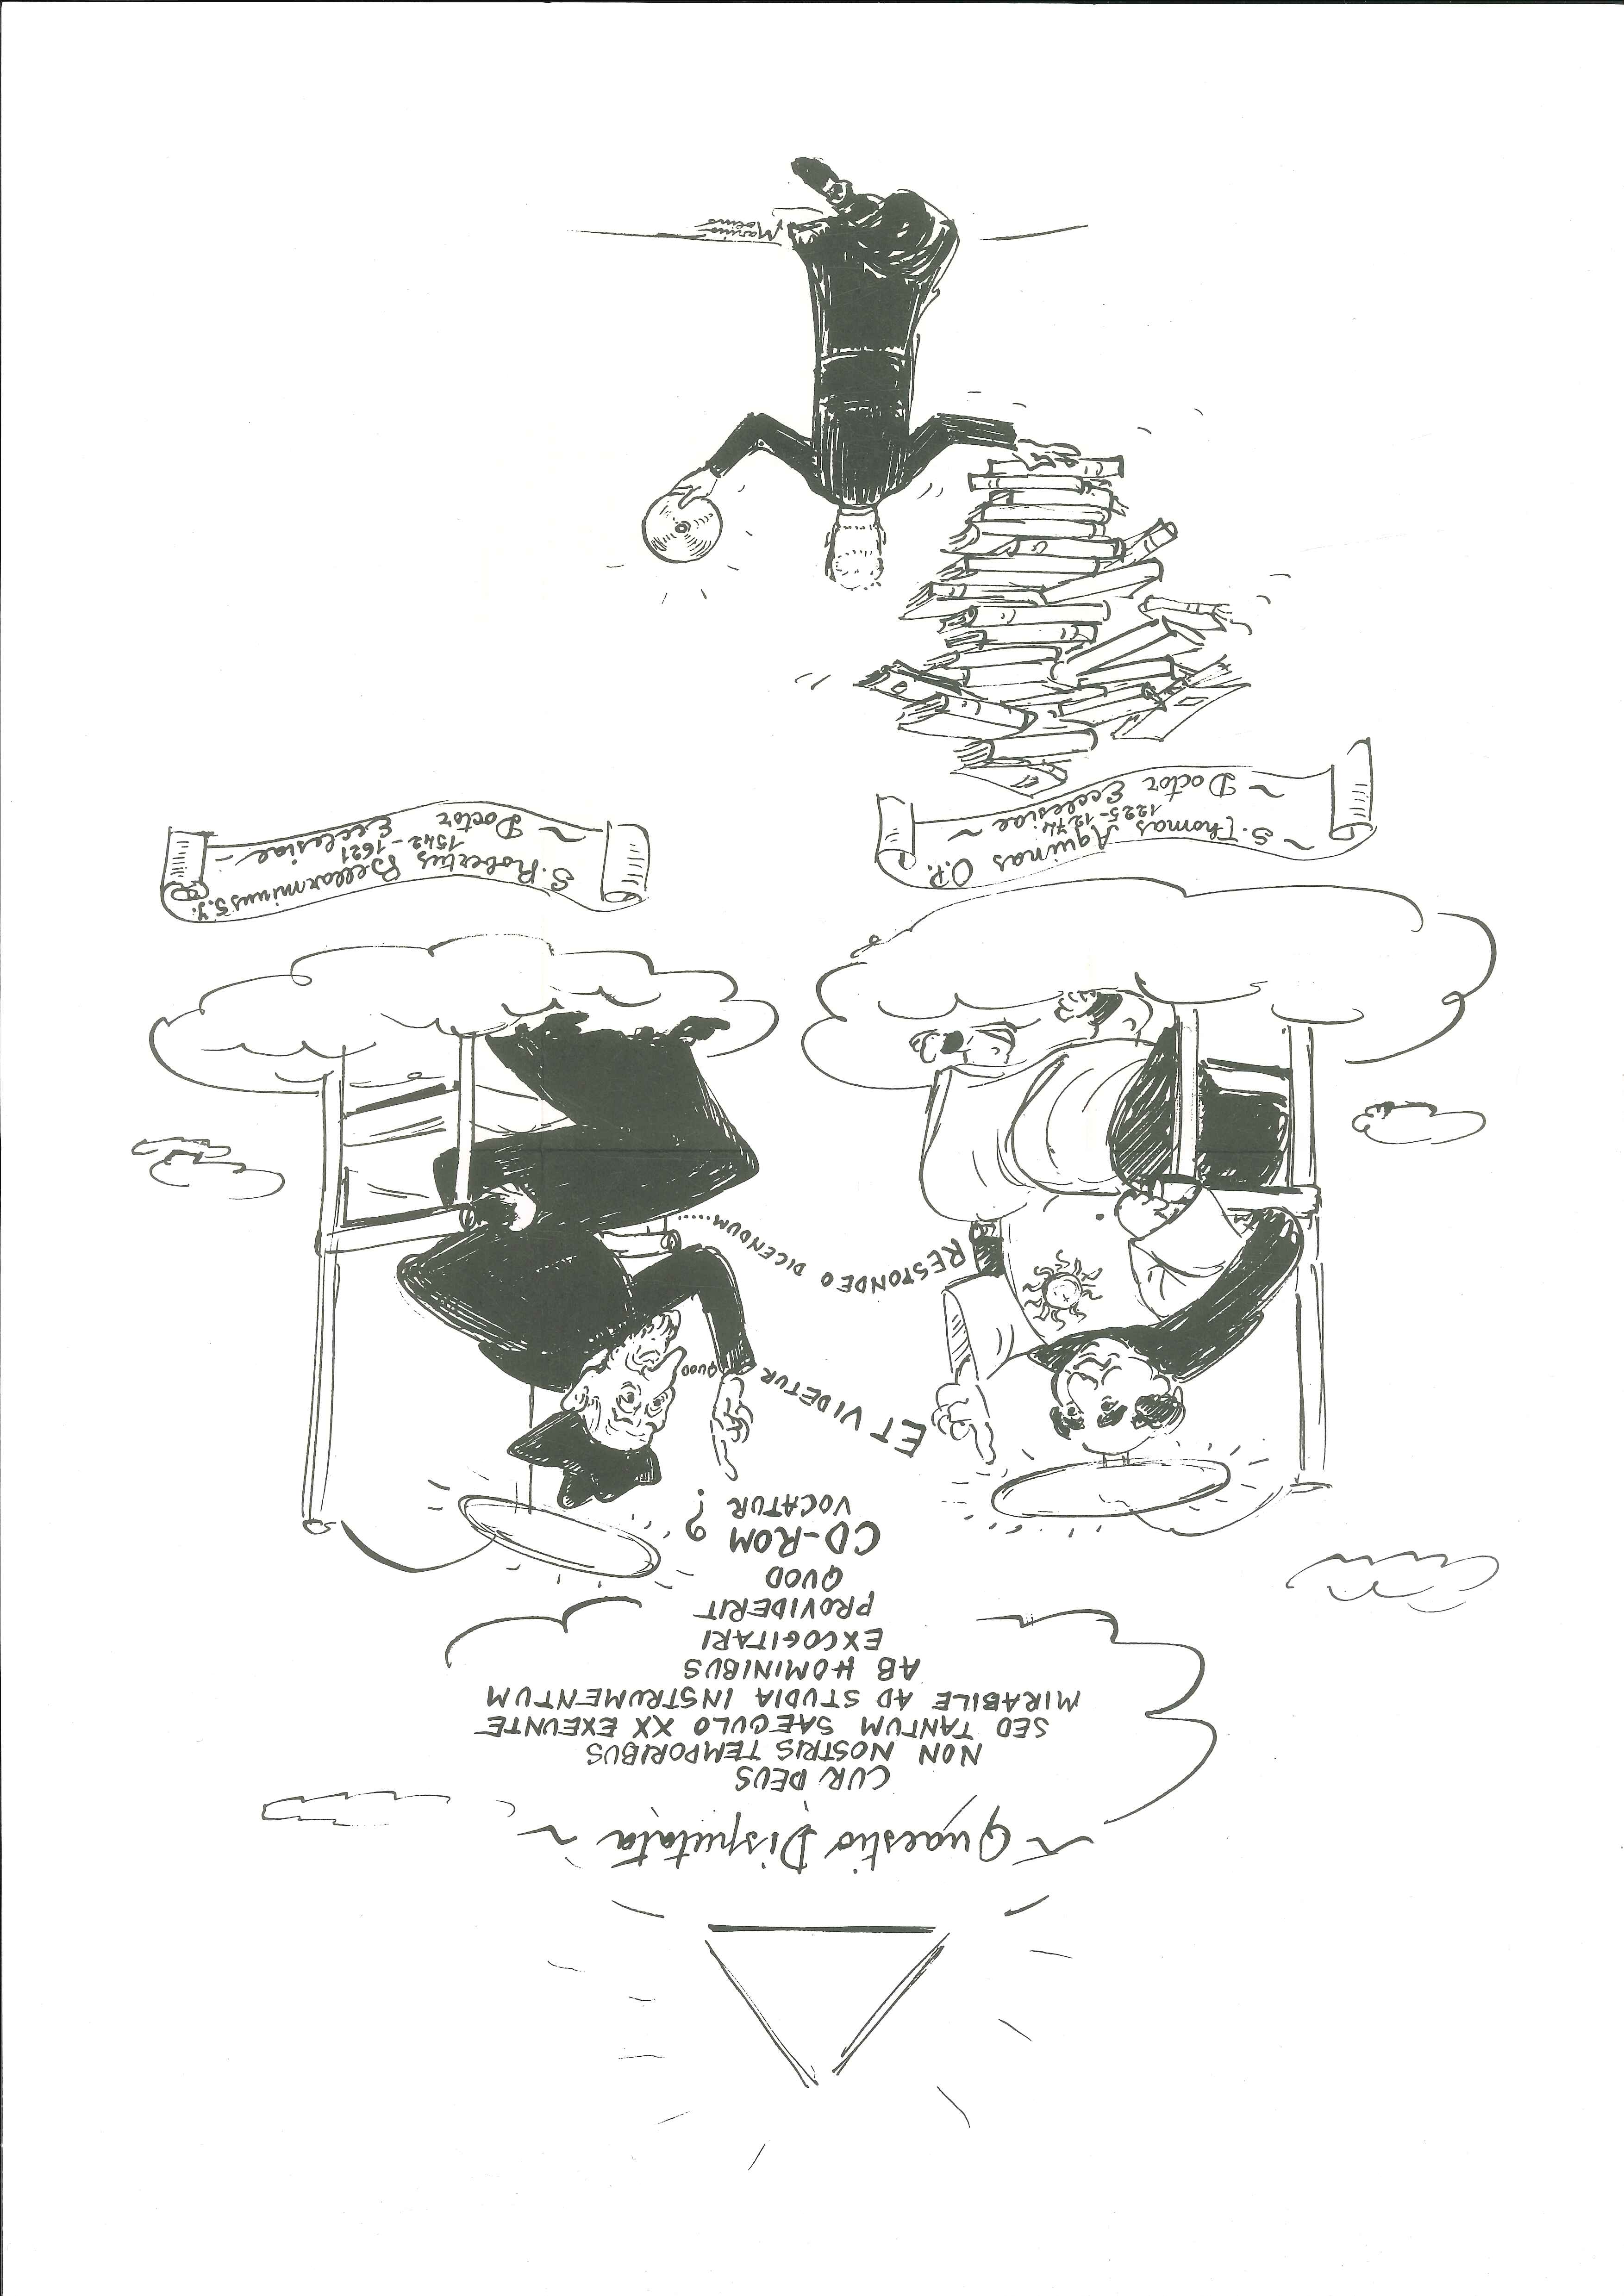 ~ Quaestio Disputata ~
CUR DEUS
NON NOSTRIS TEMPORIBUS
SED TANTUM SAECULO XX EXEUNTE
MIRABILE AD STUDIA INSTRUMENTUM
AB HOMINIBUS
EXCOGITARI
PROVIDERIT
QUOD
CD-ROM
VOCATUR ?
ET VIDETUR QUOD
RESPONDEO DICENDUM.....
~ S. Thomas Aquinas O.P.
1225-1274
~ Doctor Ecclesiae ~
S. Robertus Bellarminus S.J.
1542-1621
~ Doctor Ecclesiae -
Marino